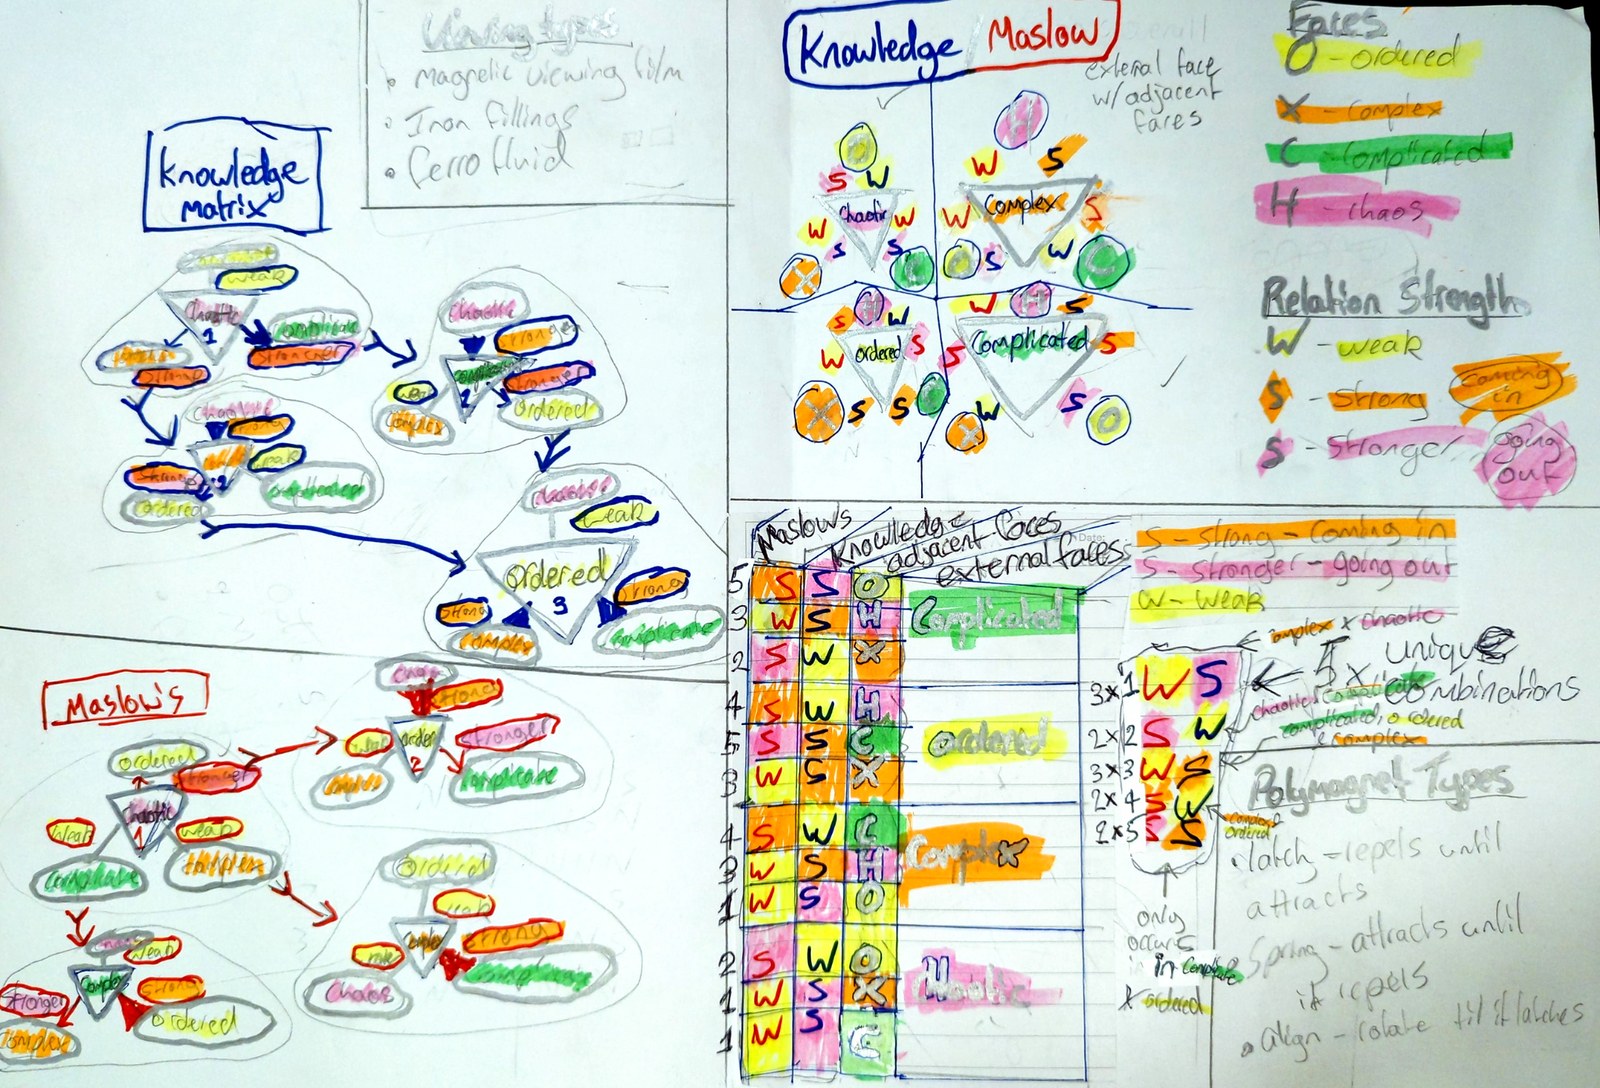 Viewing types
magnetic viewing film
Iron fillings
ferro fluid
Knowledge
matrix
weak
chaotic
1
complicate
stroncher
strong
chaotic
stronger
weak
complex
stronger
ordered
chaotic
strong
weak
complicated
ordered
chaotic
weak
ordered
3
strong
strong
complex
complicate
Maslow's
ordered
stronger
chaotic
1
weak
weak
complex
strong
weak
order
2
stronger
complex
complicate
ordered
weak
complex
strong
chaos
weak
complex
strong
stronger
ordered
complex
Knowledge Maslow
overall
external face
w/ adjacent
faces
O
S W
Chaotic
W W
S S
X C
H
W S
Complex
W S
O S W C
H W
S
ordered
W S
X S S C
W H S
Complicated
S S
X W S O
Faces
O - ordered
X - complex
C - complicated
H - chaos
Relation Strength
W - weak
S - strong coming in
S - stronger going out
Maslows
Knowledge
adjacent faces
external faces
5 S S O
3 W S H Complicated
2 S W X
4 S W H
5 S S C ordered
3 W S X
4 S W C
3 W S H Complex
1 W S O
2 S W O
1 W S X Chaotic
1 W S C
S - strong - coming in
S - stronger - going out
W - weak
complex x chaotic
5 x unique
combinations
3x1 W S
chaotic, complicated
complicated, ordered
& complex
2x2 S W
3x3 W S
2x4 S W
complex &
ordered
2x5 S S
only
occurs
in complicate
x ordered
Polymagnet Types
latch - repels until
attracts
Spring - attracts until
it repels
align - rotate til it latches